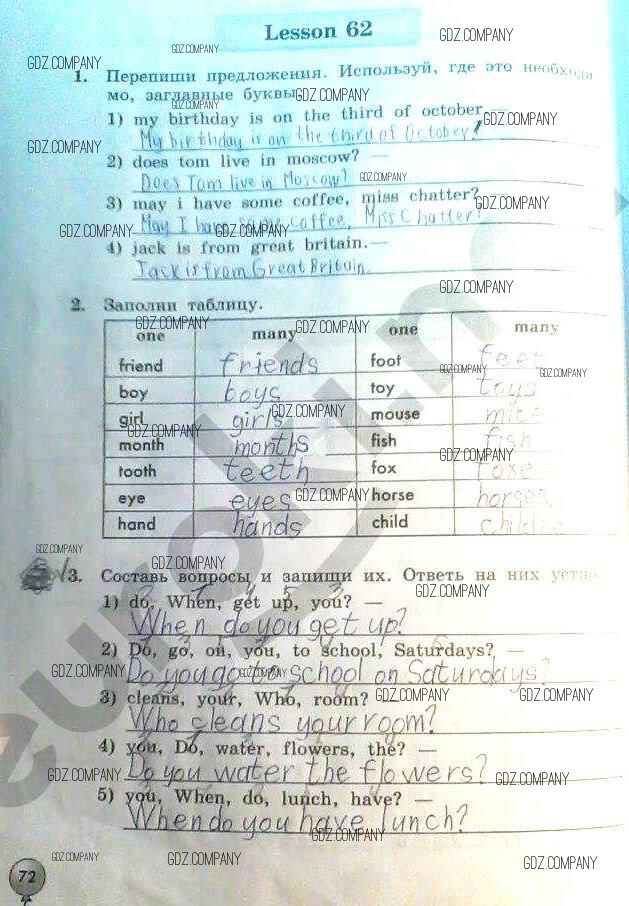 Lesson 62
1. Перепиши предложения. Используй, где это необходи
мо, заглавные буквы.
1) my birthday is on the third of october. —
My birthday is on the third of October.
2) does tom live in moscow? —
Does Tom live in Moscow?
3) may i have some coffee, miss chatter?
May I have some coffee, Miss Chatter?
4) jack is from great britain. —
Jack is from Great Britain.
2. Заполни таблицу.
one many one many
friend friends foot feet
boy boys toy toys
girl girls mouse mice
month months fish fish
tooth teeth fox foxe
eye eyes horse horses
hand hands child
3. Составь вопросы и запиши их. Ответь на них устно
1) do, When, get up, you? —
When do you get up?
2) Do, go, on, you, to school, Saturdays? —
Do you go to school on Saturdays?
3) cleans, your, Who, room?
Who cleans your room?
4) you, Do, water, flowers, the? —
Do you water the flowers?
5) you, When, do, lunch, have? —
When do you have lunch?
72
GDZ.COMPANY
euroki.n